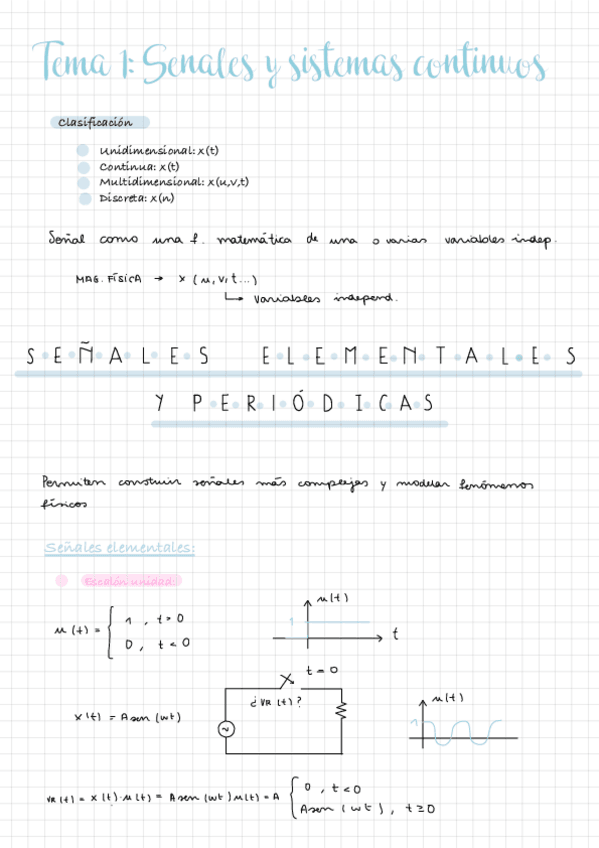 Tema 1: Senales y sistemas continuos
Clasificación
Unidimensional: x(t)
Continua: x(t)
Multidimensional: x(u,v,t)
Discreta: x(n)
Señal como una f. matemática de una o varias variables indep.
MAG. FÍSICA → x (u, v, t ...)
↳ variables independ.
SEÑALES ELEMENTALES
Y PERIÓDICAS
Permiten construir señales más complejas y modelar fenómenos
físicos
Señales elementales:
Escalón unidad:
u(t) = { 1 , t > 0
0 , t < 0
u(t)
1
t
x(t) = A sen (wt)
t = 0
¿ VR (t) ?
~
u(t)
1
VR (t) = x (t) · u (t) = A sen (wt) u(t) = A { 0 , t < 0
A sen (wt) , t ≥ 0